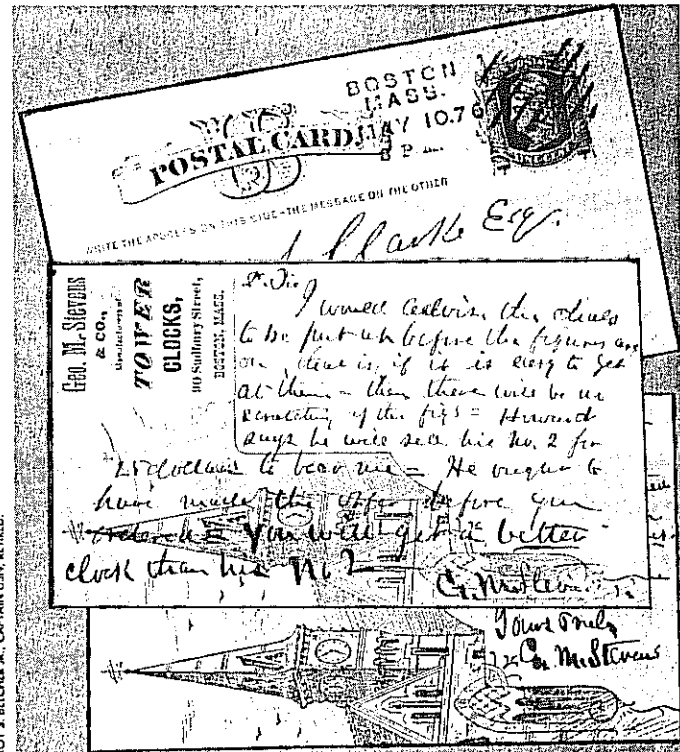 BOSTON
MASS.
MAY 10.76
POSTAL CARD
WRITE THE ADDRESS ON THIS SIDE - THE MESSAGE ON THE OTHER
Clarke Esqr.
Geo. M. Stevens
& CO.,
Manufacturers of
TOWER
CLOCKS,
Sudbury Street,
BOSTON, MASS.
D. Sir
I would advise the dials
to be put up before the figures are
on, that is, if it is easy to get
at them - then there will be no
of the figs = Howard
says he will sell his No. 2 for
25 dollars to beat me = He ought to
have made the offer before you
ordered = You will get a better
clock than his No 2
G. M. Stevens
Yours Truly
Geo. M. Stevens
JR., CAPTAIN USN, RETIRED.